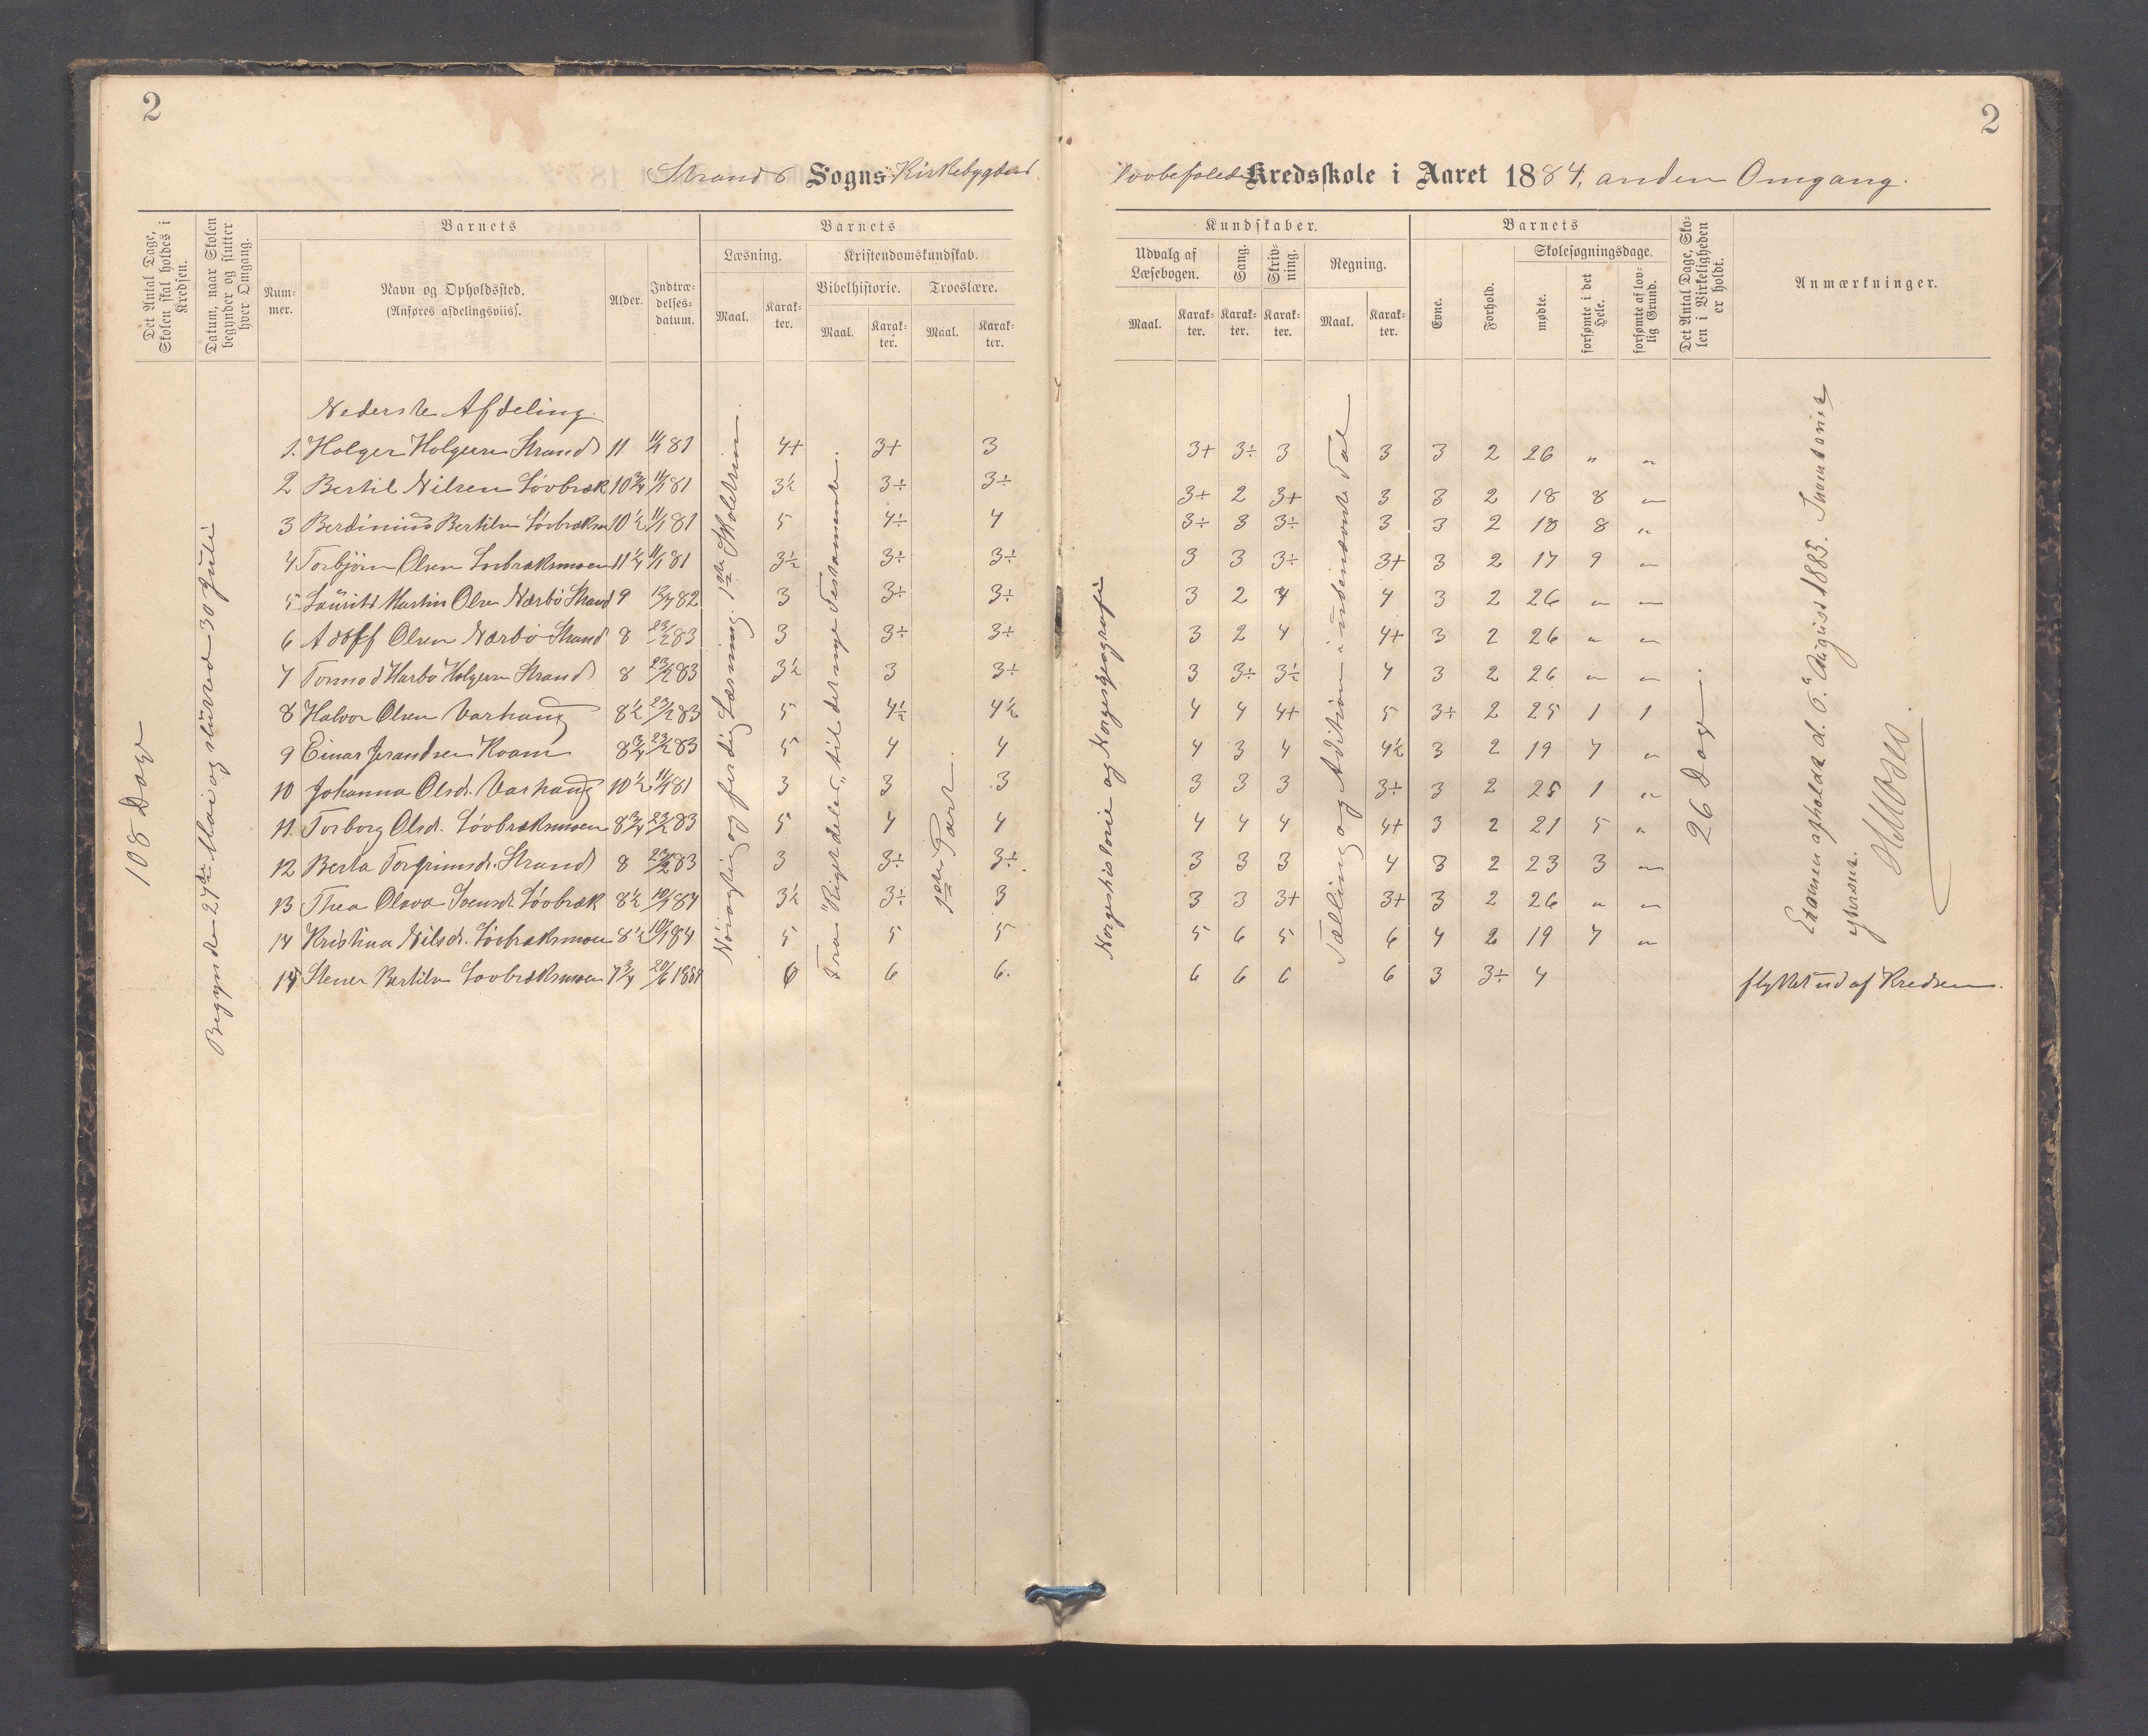 2
2
Strands Sogns Kirkebygdens
Kredsskole i Aaret 1884, anden Omgang.
Det Antal Dage, Skolen skal holdes i Kredsen.
Datum, naar Skolen begynder og slutter hver Omgang.
Barnets
Num-mer.
Navn og Opholdssted.
(Anføres afdelingsviis).
Alder.
Indtræ-delses-datum.
Barnets
Læsning.
Kristendomskundskab.
Bibelhistorie.
Troeslære.
Maal.
Karak-ter.
Maal.
Karak-ter.
Maal.
Karak-ter.
Kundskaber.
Udvalg af Læsebogen.
Sang.
Skriv-ning.
Regning.
Maal.
Karak-ter.
Karak-ter.
Karak-ter.
Maal.
Karak-ter.
Barnets
Evne.
Forhold.
Skolesøgningsdage.
mødte.
forsømte i det Hele.
forsømte af lov-lig Grund.
Det Antal Dage, Sko-len i Virkeligheden er holdt.
Anmærkninger.
108 Dage
Begyndte 27de Mai og slutted 30 Juli
Nederste Afdeling.
1. Holger Holgersen Strand 11 11/1 81 4+ 3+ 3 3+ 3÷ 3 3 3 2 26 " "
2 Bertil Nilsen Løvbræk 10 3/4 11/1 81 3½ 3÷ 3÷ 3÷ 2 3+ 3 3 2 18 8 "
3 Berdinius Bertilsen Løvbræksm 10½ 11/1 81 5 4÷ 4 3÷ 3 3÷ 3 3 2 18 8 "
4 Torbjørn Olsen Løvbræksmoen 11¼ 11/1 81 3½ 3÷ 3÷ 3 3 3÷ 3+ 3 2 17 9 "
5 Laurits Martin Olsen Nærbø Strand 9 82 3 3÷ 3÷ 3 2 4 4 3 2 26 " "
6 Adolf Olsen Nærbø Strand 8 23/2 83 3 3÷ 3÷ 3 2 4 4+ 3 2 26 " "
7 Tormod Harbo Holgersen Strand 8 23/2 83 3½ 3 3÷ 3 3÷ 3½ 4 3 2 26 " "
8 Halvor Olsen Varhaug 8½ 23/2 83 5 4½ 4½ 4 4 4+ 5 3÷ 2 25 1 1
9 Einar Jerandsen Hoam 8¾ 23/2 83 5 4 4 4 3 4 4½ 3 2 19 7 "
10 Johanna Olsdr. Varhaug 10½ 11/1 81 3 3 3 3 3 3 3÷ 3 2 25 1 "
11. Torborg Olsdr. Løvbræksmoen 8¾ 23/2 83 5 4 4 4 4 4 4+ 3 2 21 5 "
12 Berta Torgrimsdr. Strand 8 23/2 83 3 3÷ 3÷ 3 3 3 4 3 2 23 3 "
13 Thea Olava Svensdr. Løvbræk 8½ 10/1 84 3½ 3÷ 3 3 3 3+ 3+ 3 2 26 " "
14 Kristina Nilsdr. Løvbræksmoen 8½ 10/1 84 5 5 5 5 6 5 6 4 2 19 7 "
15 Stener Bertilsen Løvbræksmoen 7¾ 20/6 1884 6 6 6. 6 6 6 6 3 3÷ 4 flyttet ud af Kredsen.
Nøiagtig og ferdig Læsning. 1ste Skoletrin
Fra "Rigerdeles" til det nye Testamente.
1ste Part.
Norgeshistorie og Norgesgeografi
Tælling og Addition i ubenævnte Tal
26 Dage.
Examen afholdt d. 6. August 1885.